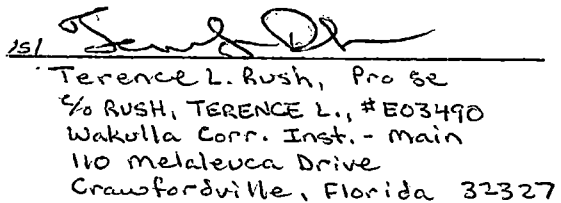 /s/
Terence L. Rush, Pro se
c/o RUSH, TERENCE L., #E03490
Wakulla Corr. Inst. - Main
110 Melaleuca Drive
Crawfordville, Florida 32327